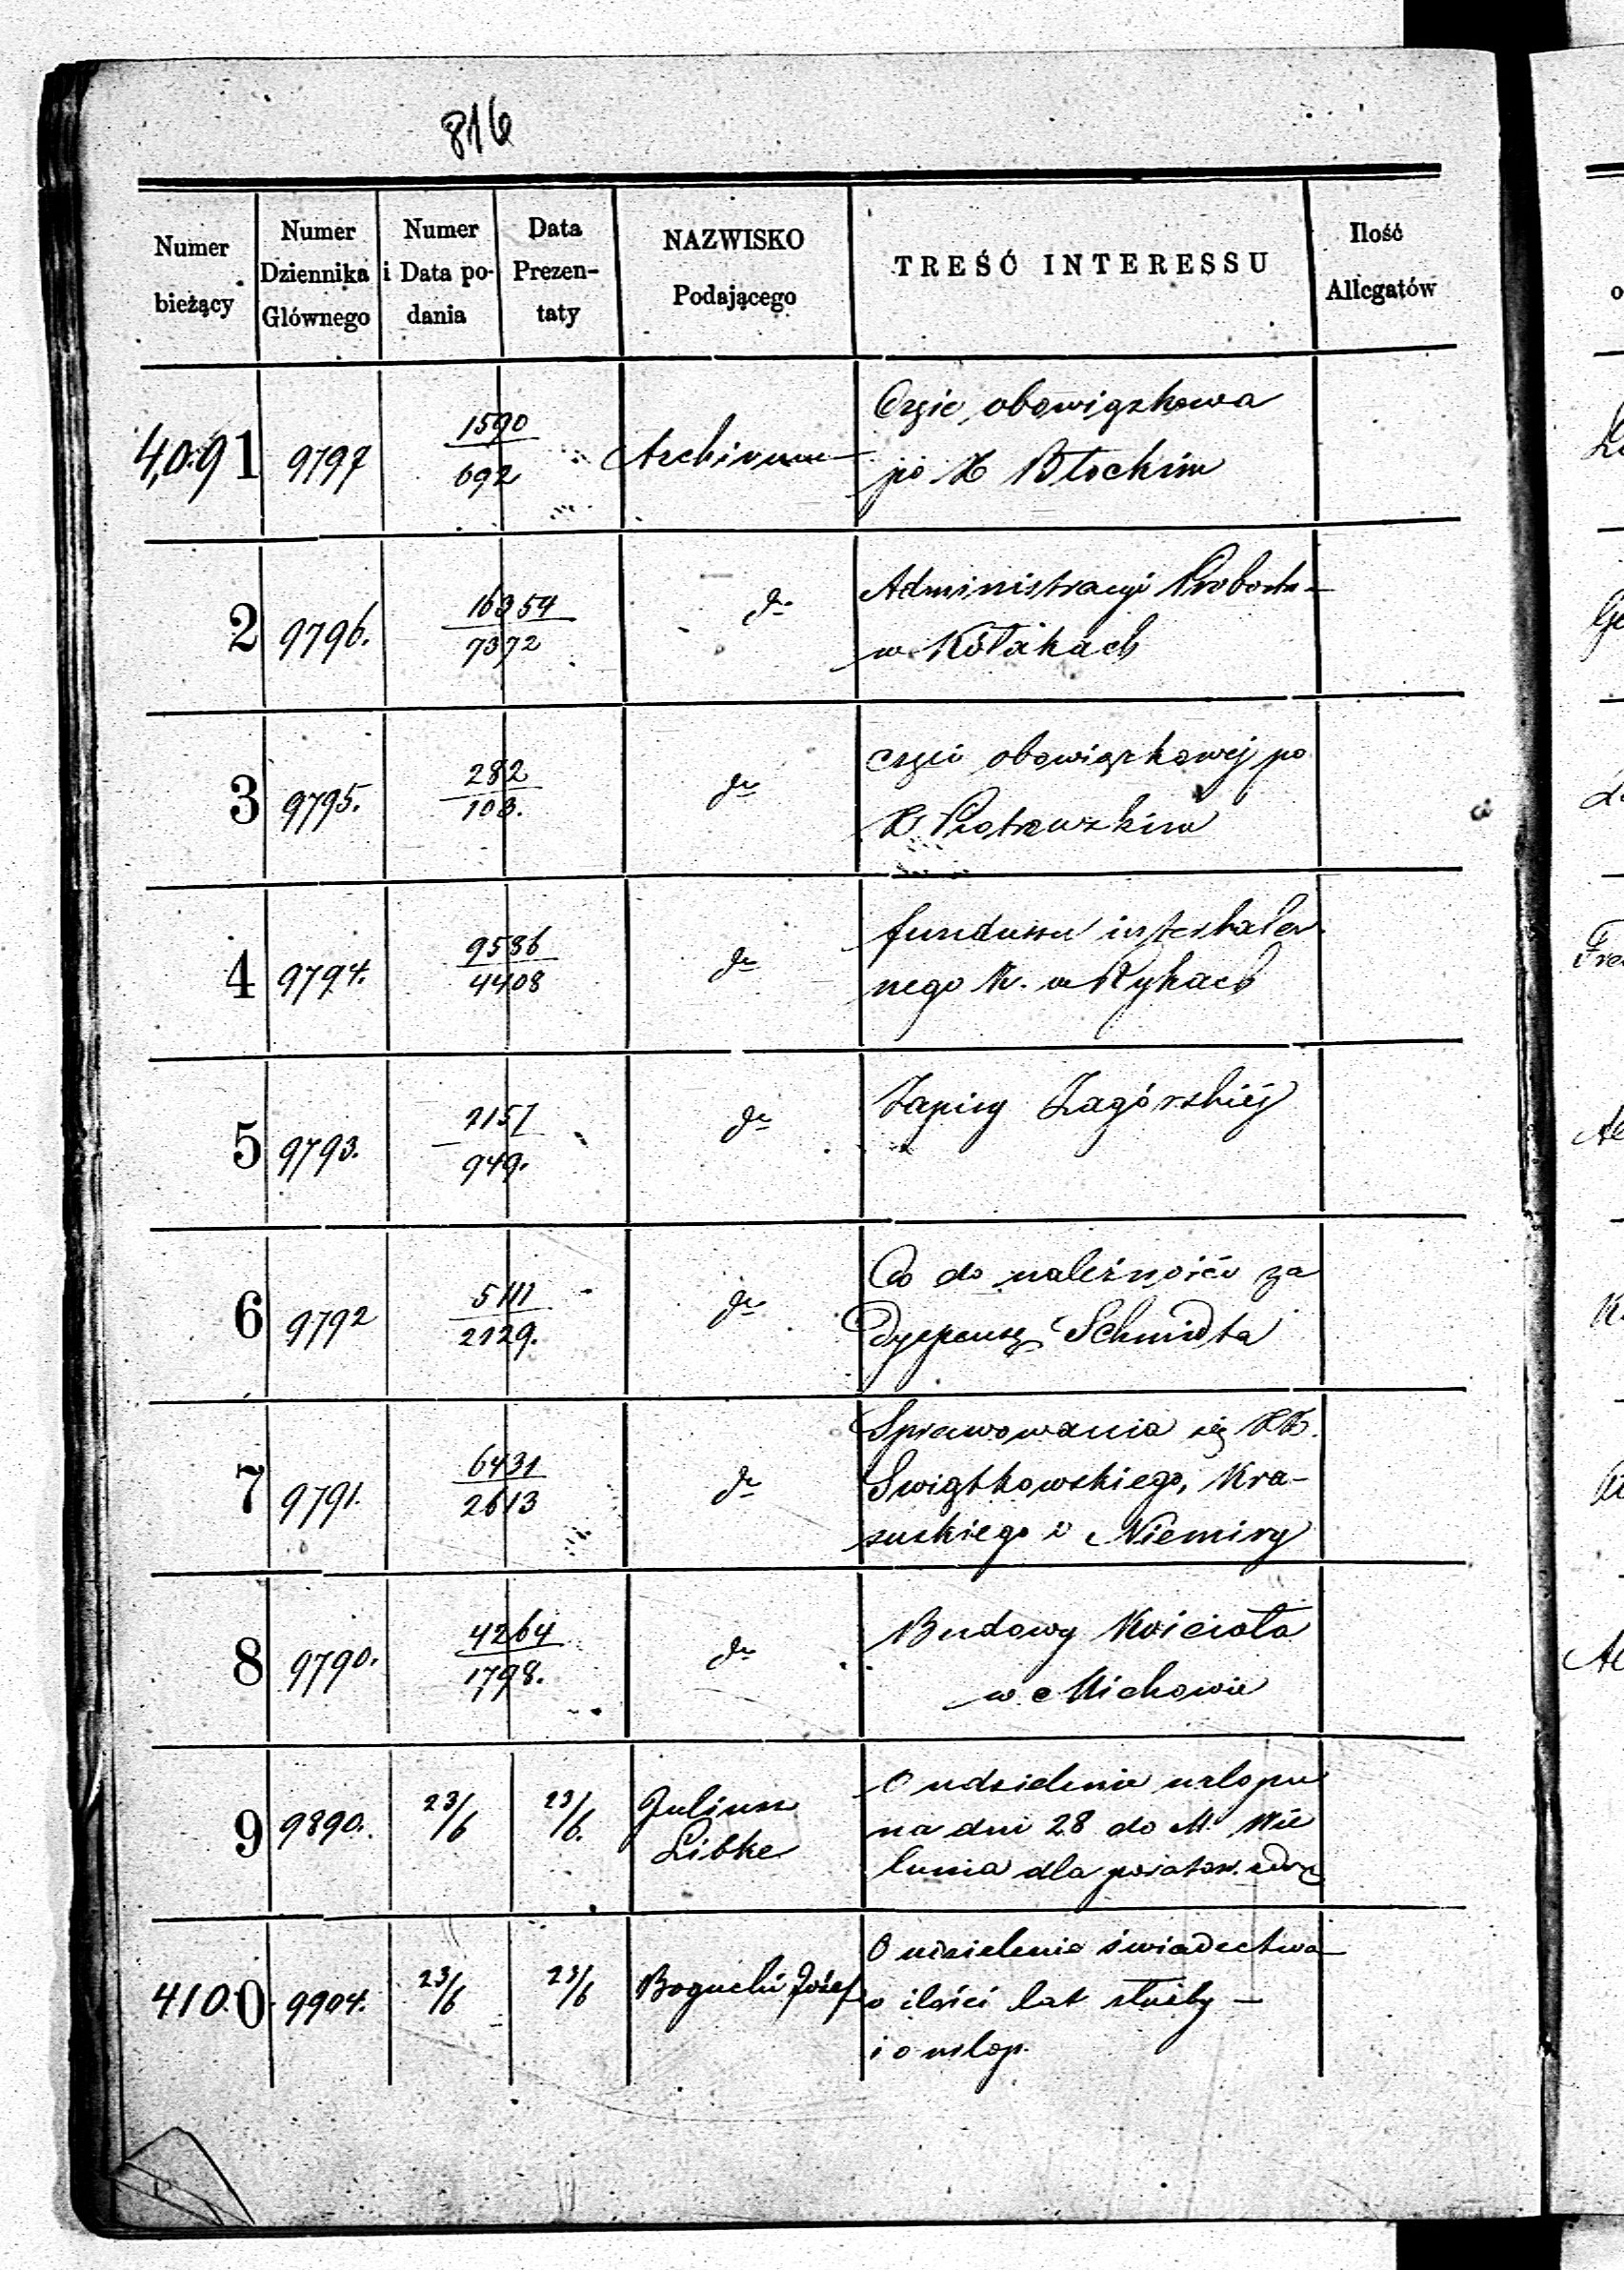 816
Numer bieżący
Numer Dziennika Głównego
Numer i Data podania
Data Prezentaty
NAZWISKO Podającego
TREŚĆ INTERESSU
Ilość Allegatów
4,091 9797 1590/692 Archivum obowiązkowa
po X Błockim
2 9796. 16354/7372 do Administracyi Probostw
w Kołakach
3 9795. 282/103. do obowiązkowej po
X Piotrowskim
4 9794. 9536/4408 do funduszu interkalar
nego K. w Rykach
5 9793. 2157/949. do Zapisy Zagórskiéj
6 9792 5111/2129. do Co do należności za
dyspensę Schmidta
7 9791. 6431/2613 do Sprawowania się XX.
Swiątkowskiego, Kra-
suskiego i Niemiry
8 9790. 4264/1798. do Budowy Kościoła
w Michowie
9 9890. 23/6 23/6. Juliusz
Libke
O udzielenie urlopu
na dni 28 do M. Wie
lunia dla
4100 9904. 23/6 23/6 Bogucki Józef O udzielenie świadectwa
o ilości lat służby —
i o urlop.